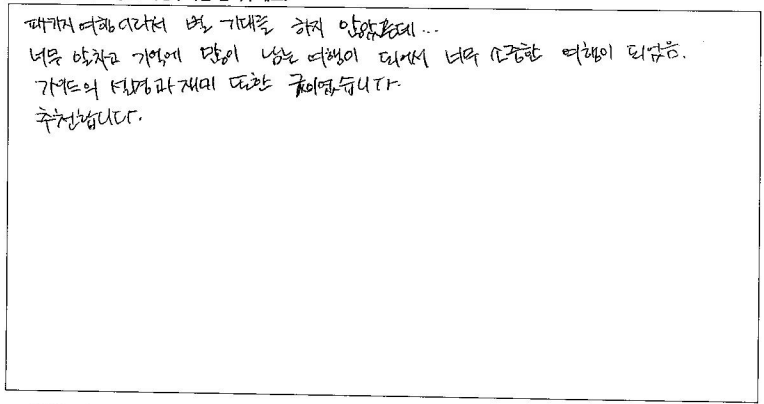 패키지여행이라서 별 기대를 하지 않았는데...
너무 알차고 기억에 많이 남는 여행이 되어서 너무 소중한 여행이 되었음.
가이드의 설명과 재미 또한 굿이었습니다.
추천합니다.